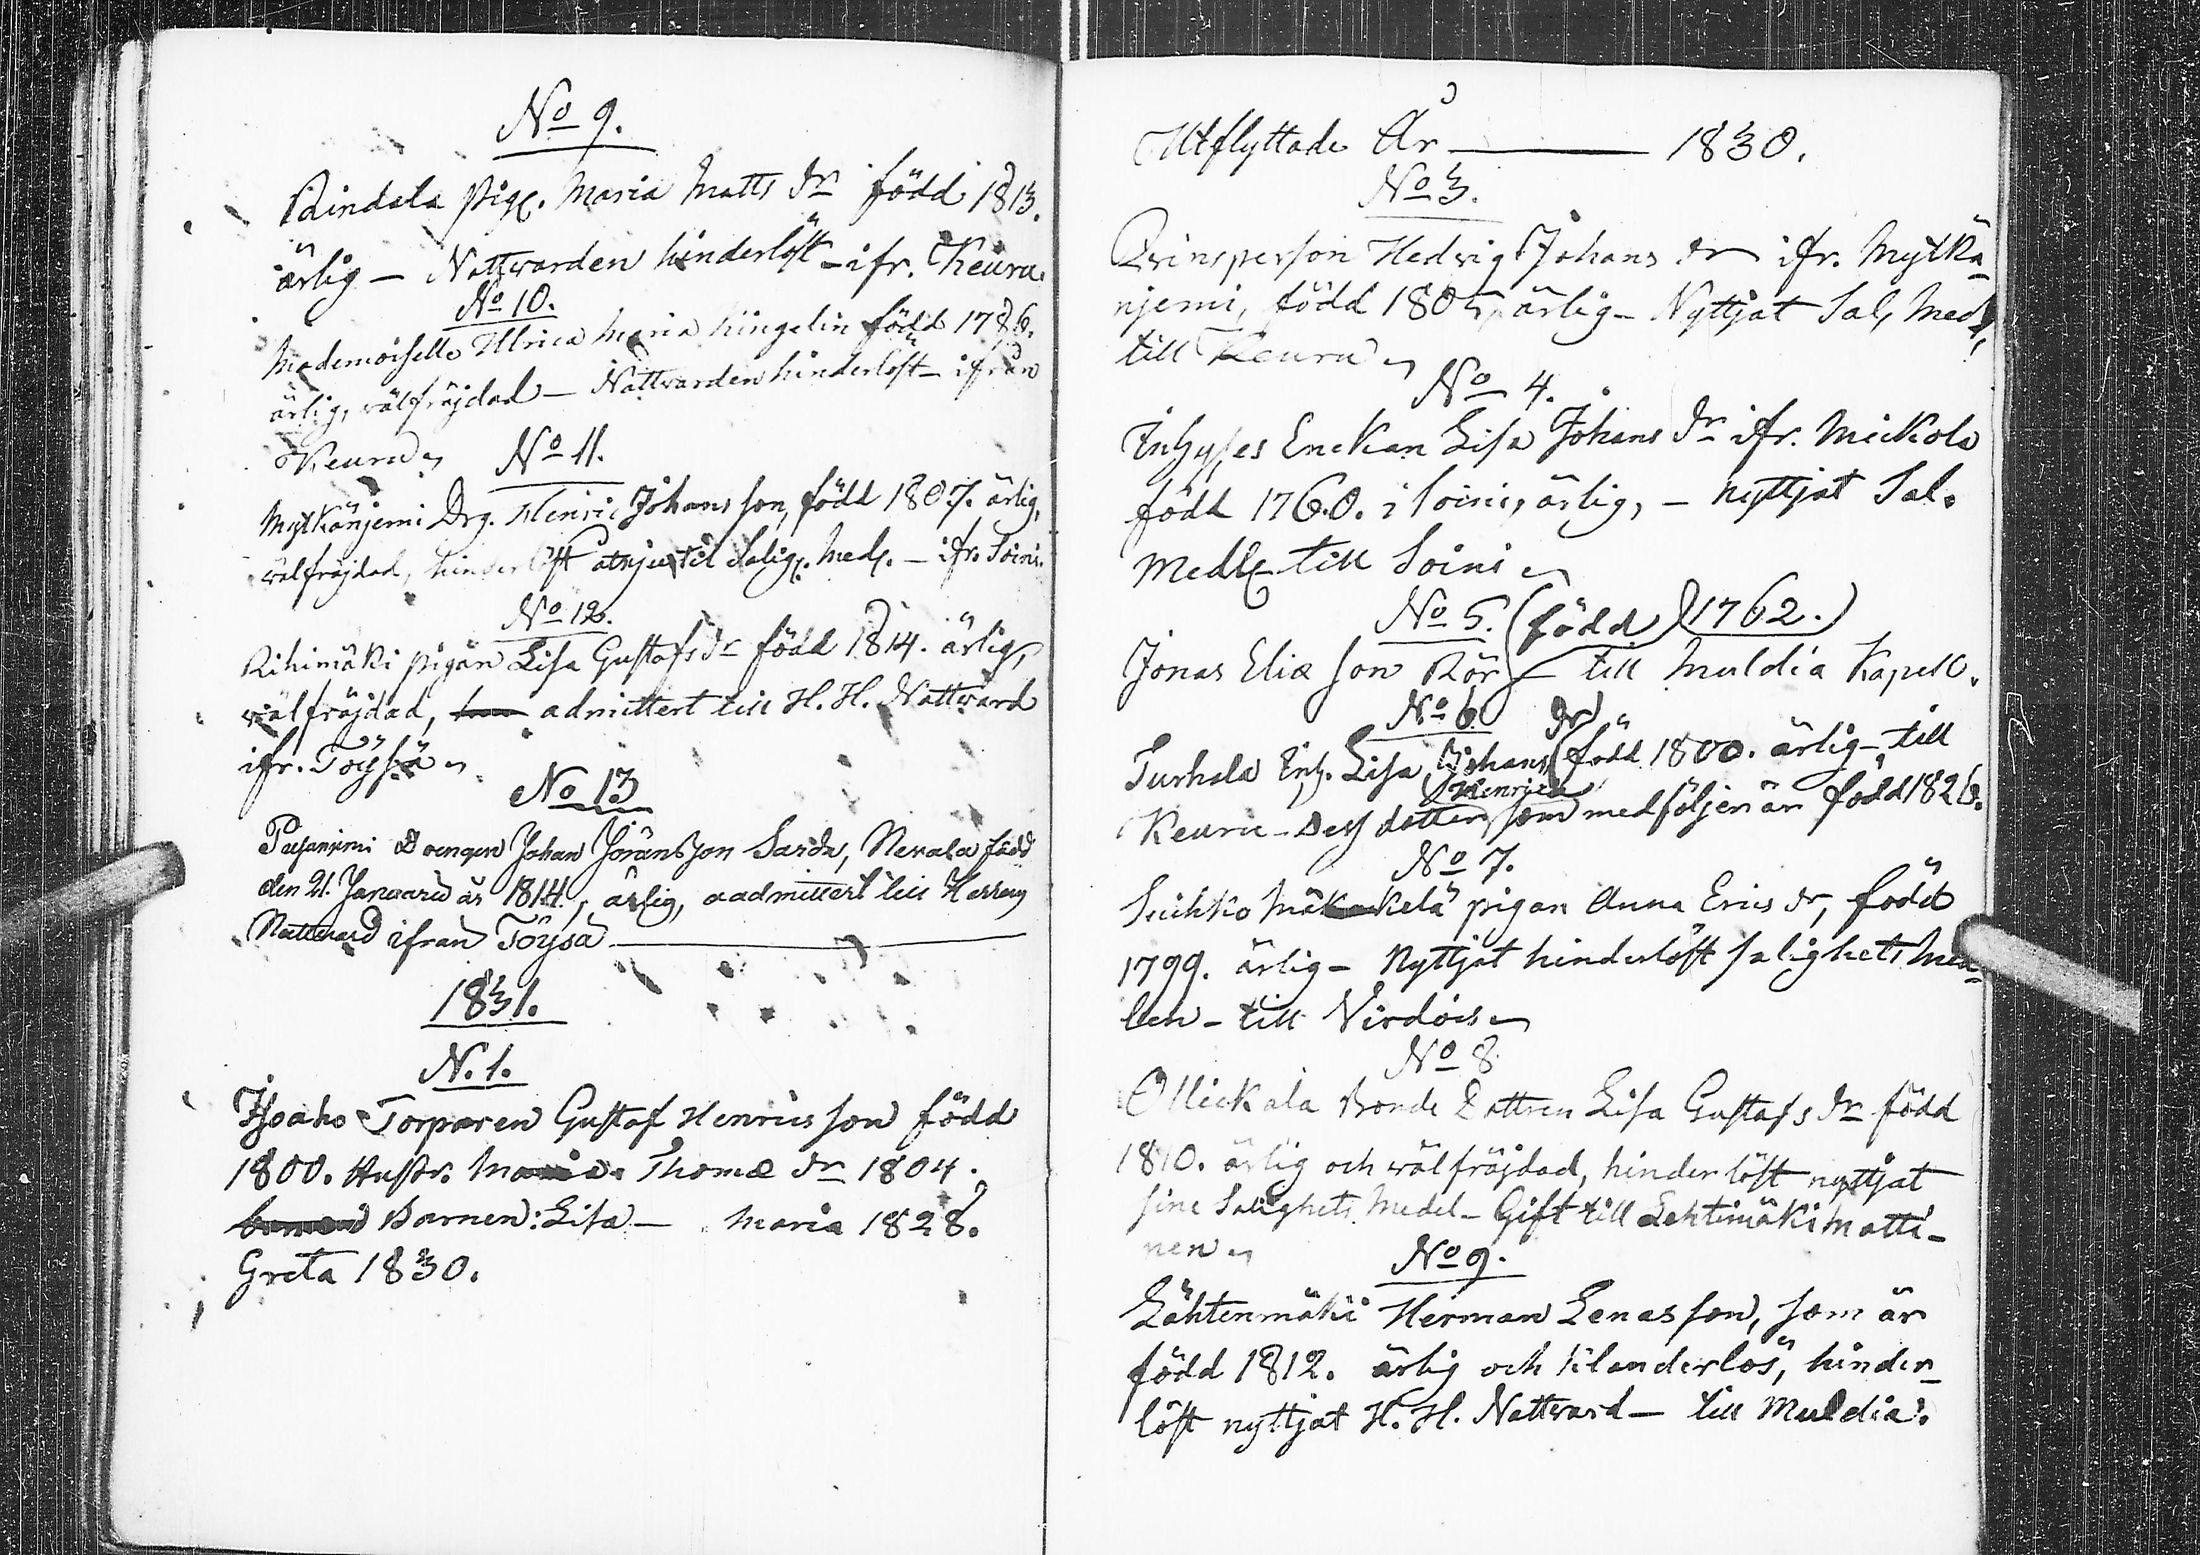 No 9.
Rindala Pig. Maria Matts dr född 1813.
ärlig — Nattvarden hinderlöst - ifr. Keuru.
No 10.
Mademoiselle Ulrica Maria Kingelin född 1786.
ärlig, välfräjdad — Nattvarden hinderlöst - ifrån
Keuru
No 11.
Mytkänjemi Drg. Henric Johansson, född 1807. ärlig,
välfräjdad, hinderlöst til Salig. Med. — ifr. Soini.
No 12.
Rihimäki pigan Lisa Gustafs dr född 1814. ärlig,
välfräjdad, admittert till H. H. Nattvard
ifr. Töysä
No 13
Johan Jöransson Nevala född
den 21. Januarii år 1814, ärlig, admittert till Herrens
Nattvard ifrån Töysä
1831.
N. 1.
Isoaho Torparen Gustaf Henricsson född
1800. Hustr. Maria Thomæ dr 1804.
Barnen: Lisa — Maria 1828.
Greta 1830.
Utflyttade År — 1830.
No 3.
Qvinsperson Hedvig Johans dr ifr. Mytkä-
njemi, född 1805, ärlig — Nyttjat Sal. Med.
till Keuru
No 4.
Inhyses Enckan Lisa Johans dr ifr. Mickola
född 1760. i Soini, ärlig, — nyttjat Sal.
Medl. till Soini
No 5. (född 1762.)
Jonas Eliæ son Rör — till Muldia Kapell.
No 6. dr
Turhala Inh. Lisa Johans född 1800. ärlig — till
Henrica
Keuru - Dess dotter som medföljer är född 1826.
No 7.
Suihko Mäkelä pigan Anna Erics dr, född
1799. ärlig — Nyttjat hinderlöst salighets Med-
len - till Virdois
No 8
Ollickala Bonde Dottren Lisa Gustafs dr född
1810. ärlig och välfräjdad, hinderlöst nyttjat
sine Salighets Medel - Gift till Lehtimäki Matti-
nen
No 9.
Lähtenmäki Herman Lenasson, som är
född 1812. ärlig och klanderlös, hinder-
löst nyttjat H. H. Nattvard — till Muldia.